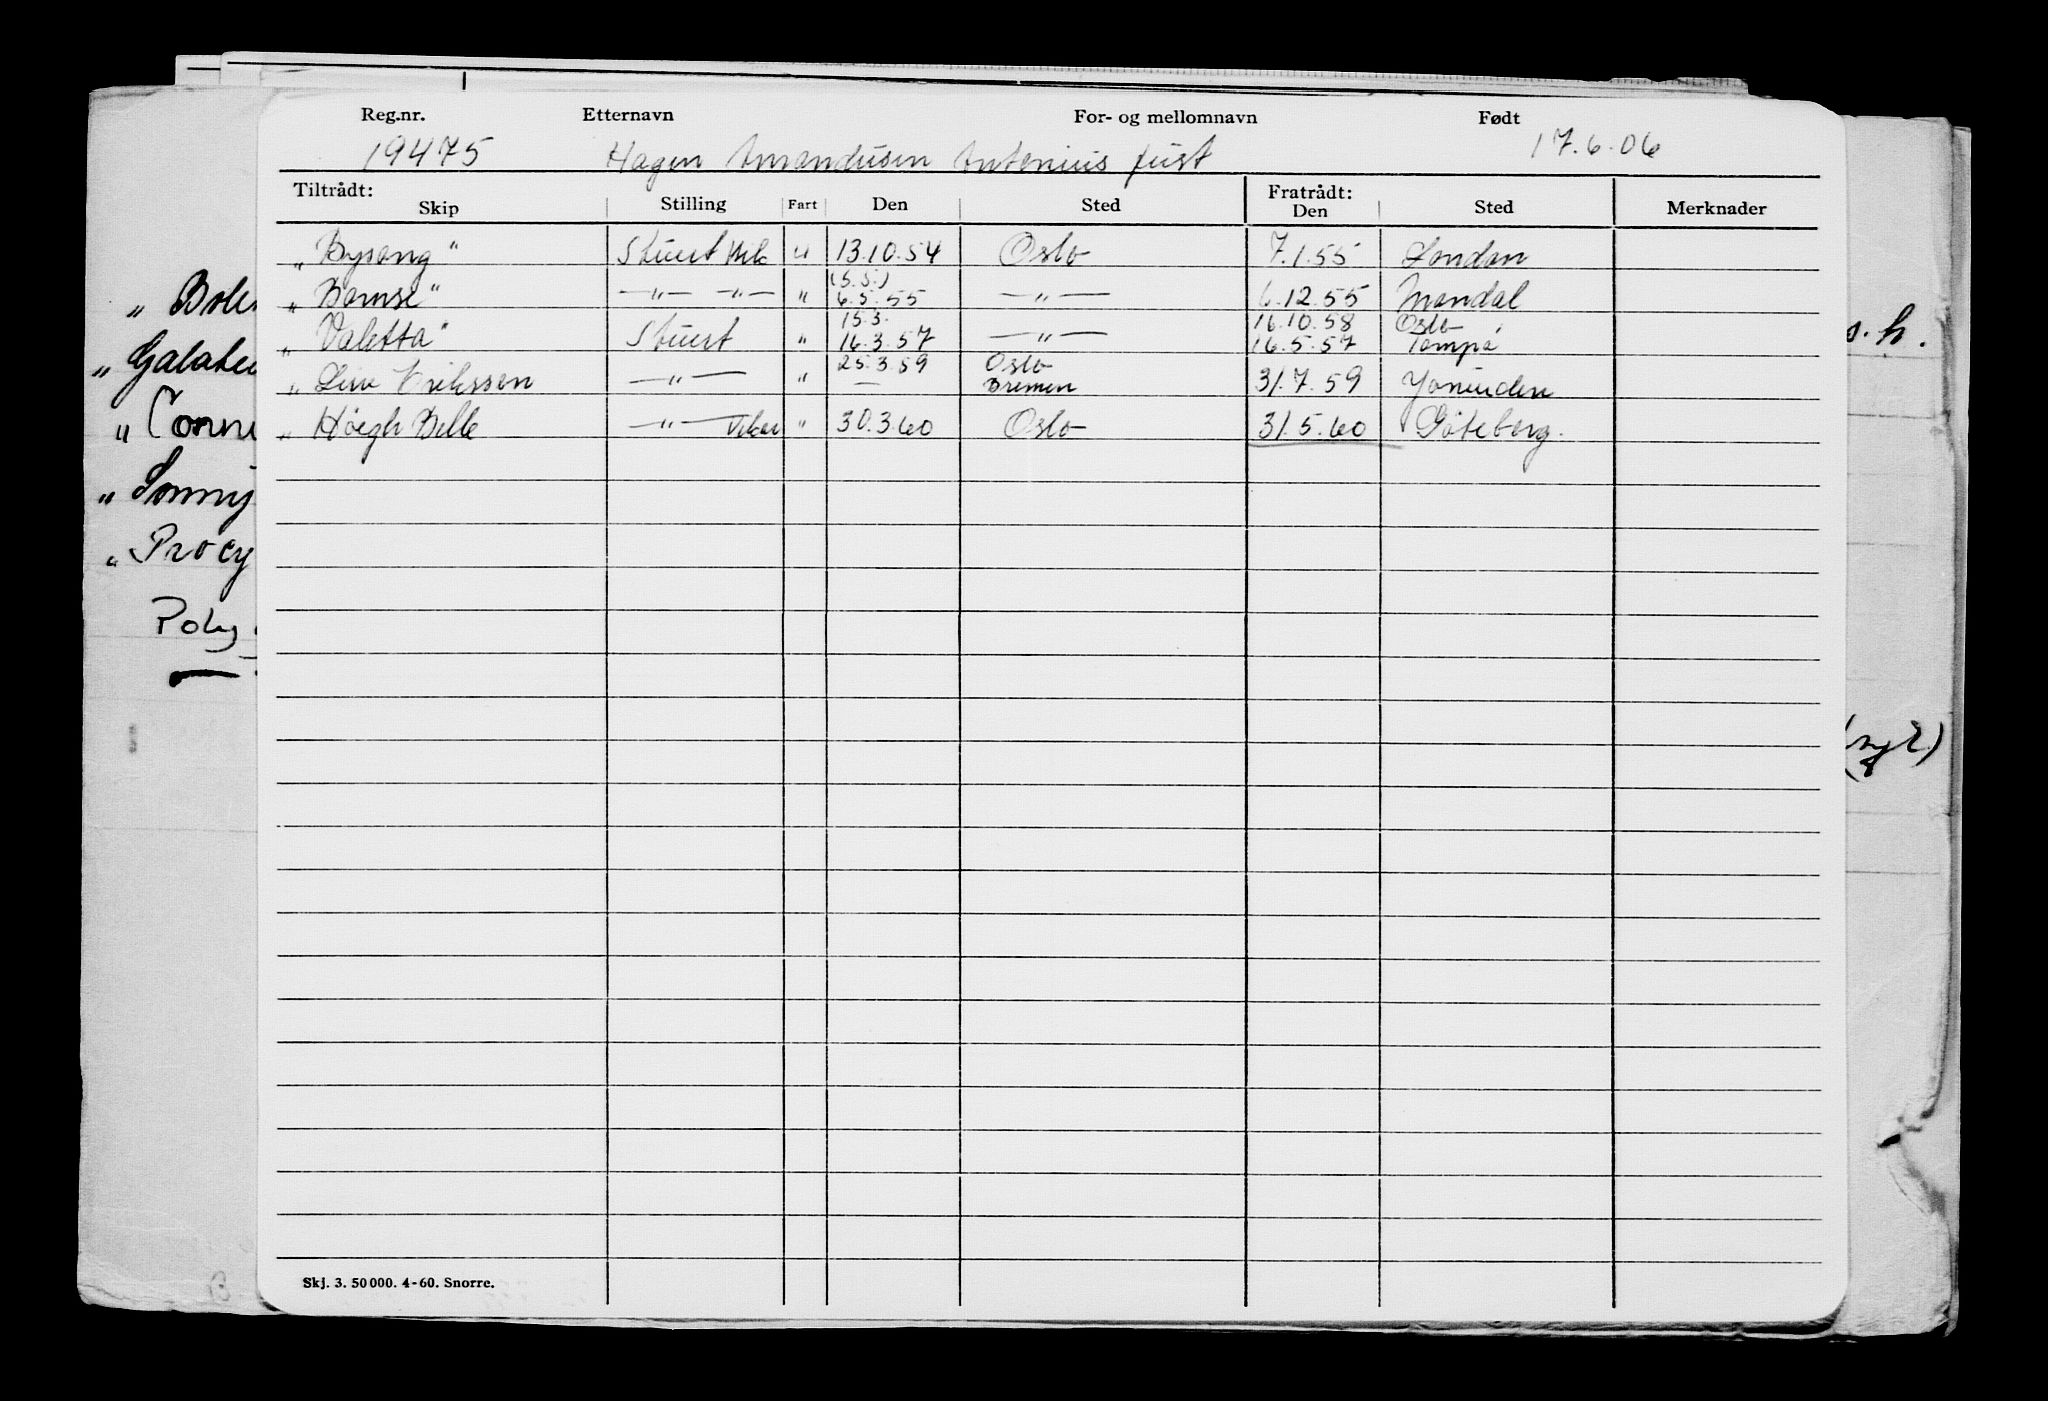 Reg.nr. Etternavn For- og mellomnavn Født
19475 Hagen Amandusen Antonius Just 17.6.06
Tiltrådt: Fratrådt:
Skip Stilling Fart Den Sted Den Sted Merknader
„ Bysang " Stuert " 13.10.54 Oslo 7.1.55 London
(5.5.)
„ Bamse" —"— —"— " 6.5.55 —"— 6.12.55 Mandal
15.3. 16.10.58 Oslo
„ Valetta" Stuert " 16.3.57 —"— 16.5.57 Tampa
25.3.59 Oslo
„ Eriksson —"— " — Bremen 31.7.59
„ Høegh Belle —"— Vikar " 30.3.60 Oslo 31.5.60 Göteborg.
„ Galatea
„ Sonny
„ Procy
Poly
s. h.
Skj. 3. 50 000. 4-60. Snorre.